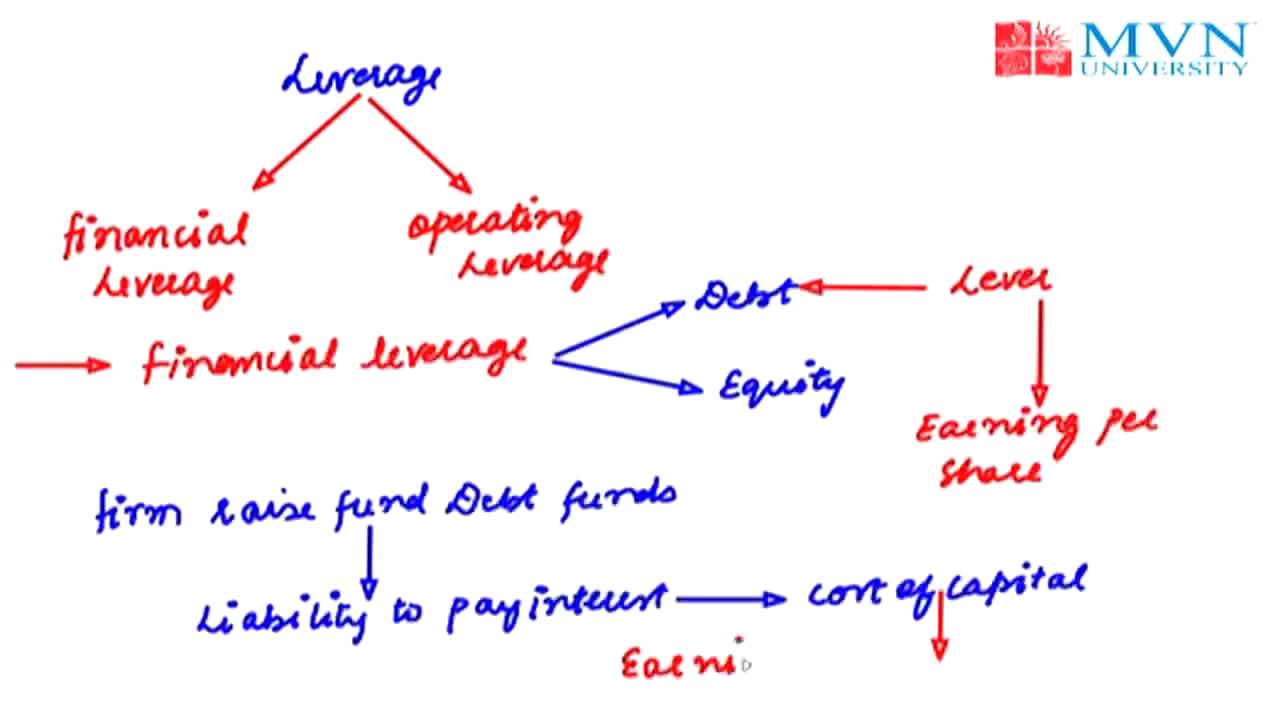 MVN
UNIVERSITY
Leverage
financial
Leverage
operating
Leverage
Debt
Lever
financial leverage
Equity
Earning per
share
firm raise fund Debt funds
Liability to pay interest
cost of capital
Earni